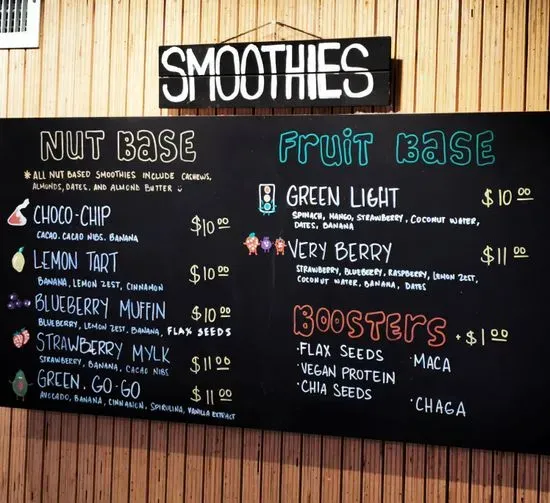 SMOOTHIES
NUT BASE
*ALL NUT BASED SMOOTHIES INCLUDE CASHEWS,
ALMONDS, DATES, AND ALMOND BUTTER
CHOCO-CHIP $10.00
CACAO, CACAO NIBS, BANANA
LEMON TART $10.00
BANANA, LEMON ZEST, CINNAMON
BLUEBERRY MUFFIN $10.00
BLUEBERRY, LEMON ZEST, BANANA, FLAX SEEDS
STRAWBERRY MYLK $11.00
STRAWBERRY, BANANA, CACAO NIBS
GREEN.GO-GO $11.00
AVOCADO, BANANA, CINNAMON, SPIRULINA, VANILLA EXTRACT
FRUIT BASE
GREEN LIGHT $10.00
SPINACH, MANGO, STRAWBERRY, COCONUT WATER,
DATES, BANANA
VERY BERRY $11.00
STRAWBERRY, BLUEBERRY, RASPBERRY, LEMON ZEST,
COCONUT WATER, BANANA, DATES
BOOSTERS +$1.00
·FLAX SEEDS ·MACA
·VEGAN PROTEIN
·CHIA SEEDS ·CHAGA